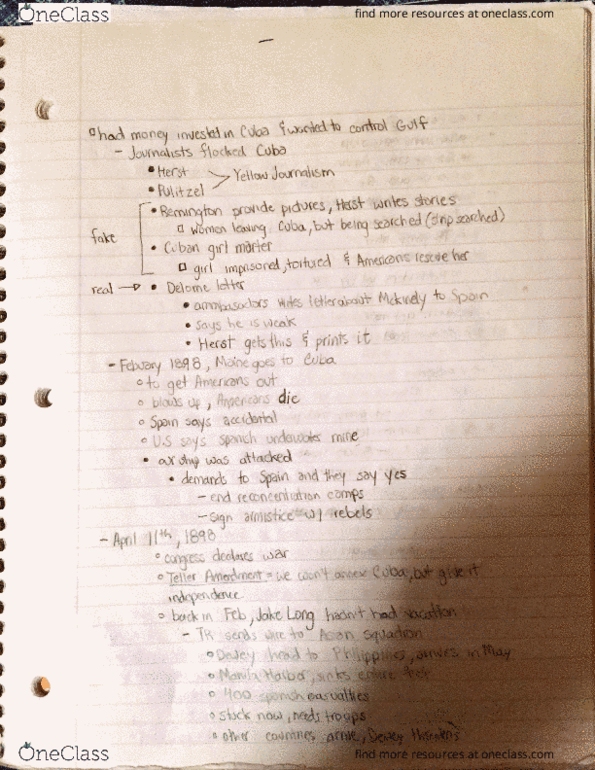 OneClass
find more resources at oneclass.com
had money invested in Cuba & wanted to control Gulf
- Journalists flocked Cuba
• Herst
• Pulitzel > Yellow Journalism
• Remington provide pictures, Herst writes stories
women leaving Cuba, but being searched (strip searched)
fake
• Cuban girl marter
girl imprisoned, tortured & Americans rescue her
real → • Delome letter
• ammbasadors writes letter about Mckinely to Spain
• says he is weak
• Herst gets this & prints it
- Febuary 1898, Maine goes to Cuba
to get Americans out
blows up, Americans die
Spain says accidental
U.S says spanish underwater mine
• our ship was attacked
• demands to Spain and they say yes
- end reconcentration camps
- sign armistice w/ rebels
- April 11th, 1898
congress declares war
Teller Amendment = we won't annex Cuba, but give it
independence
back in Feb, Long hadn't had vacation
- TR sends wire to Asian squadron
Dewey head to Philippines, arrives in May
Manila Harbor, sinks entire
400 spanish casualties
stuck now, needs troops
other countries arrive, Dewey
OneClass
find more resources at oneclass.com